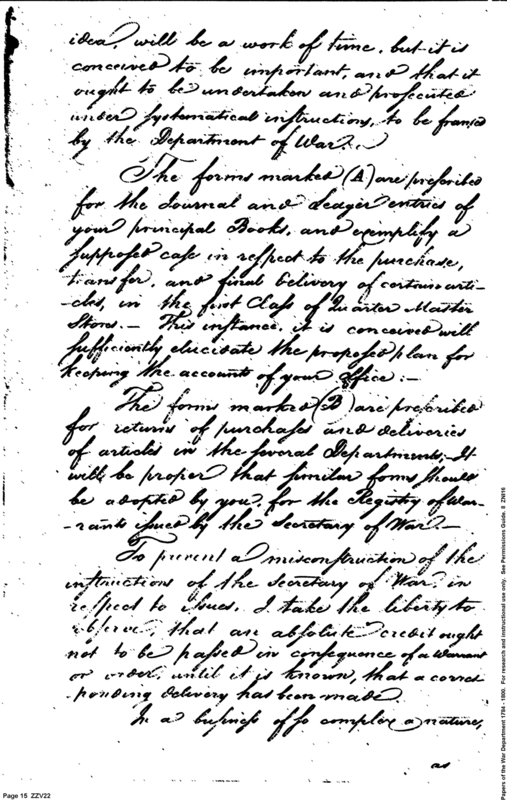 idea, will be a work of time, but it is
conceived to be important, and that it
ought to be undertaken and prosecuted
under systematical instructions, to be framed
by the Department of War.
The forms marked (A) are prescribed
for the Journal and Ledger entries of
your principal Books, and exemplify a
supposed case in respect to the purchase,
transfer, and final delivery of certain arti-
-cles, in the first Class of Quarter Master
Stores. — This instance, it is conceived will
sufficiently elucidate the proposed plan for
keeping the accounts of your Office :—
The forms marked (B) are prescribed
for returns of purchases and deliveries
of articles in the several Departments,- It
will be proper that similar forms should
be adopted by you, for the Registry of War-
-rants issued by the Secretary of War.—
To prevent a misconstruction of the
instructions of the Secretary of War, in
respect to issues, I take the liberty to
observe, that an absolute credit ought
not to be passed in consequence of a Warrant
or order, until it is known, that a corres
-ponding delivery has been made.
In a business of so complex a nature,
as
Page 15 ZZV22
Papers of the War Department 1784 - 1800. For research and instructional use only. See Permissions Guide. II ZNI16